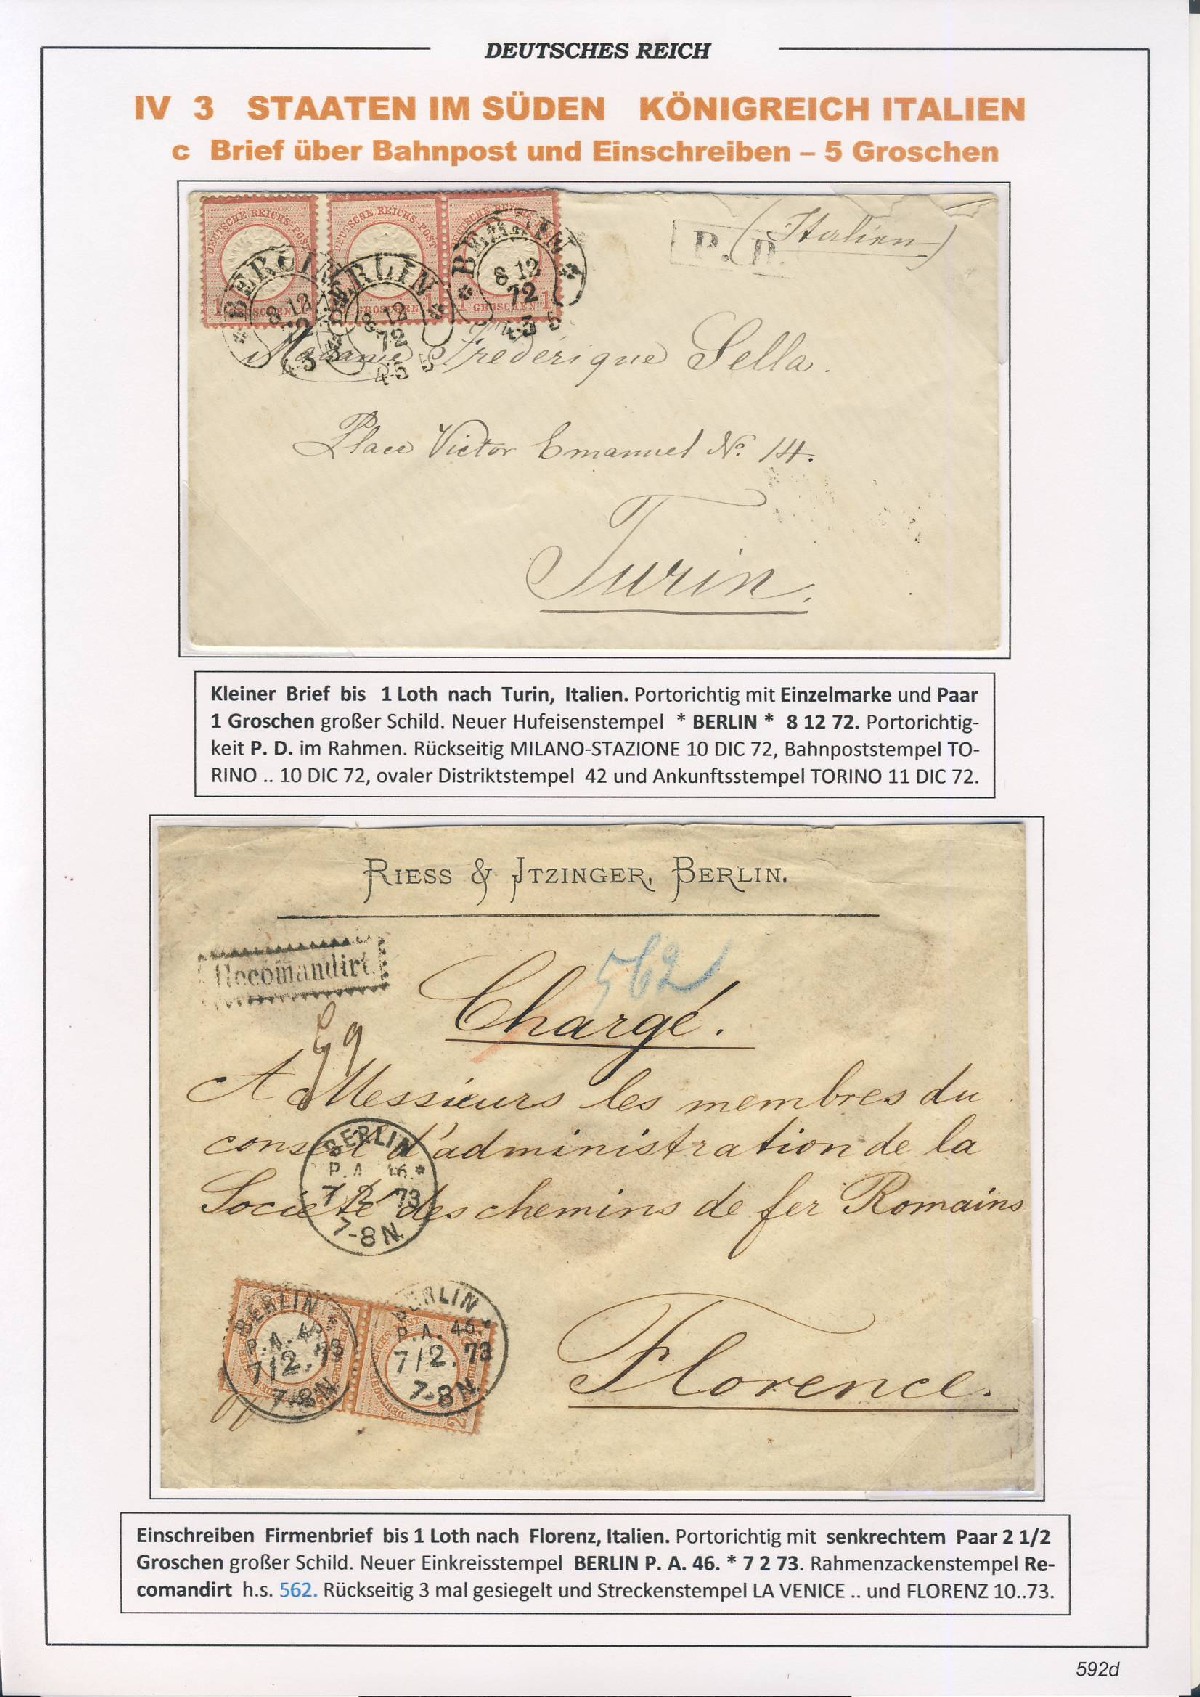 DEUTSCHES REICH
IV 3 STAATEN IM SÜDEN KÖNIGREICH ITALIEN
c Brief über Bahnpost und Einschreiben – 5 Groschen
P. D.
(Italien)
DEUTSCHE REICHS-POST
1 GROSCHEN 1
* BERLIN *
8 12
72
4-5
Madame Frederique Sella.
Place Victor Emanuel No. 14.
Turin.
Kleiner Brief bis 1 Loth nach Turin, Italien. Portorichtig mit Einzelmarke und Paar
1 Groschen großer Schild. Neuer Hufeisenstempel * BERLIN * 8 12 72. Portorichtig-
keit P. D. im Rahmen. Rückseitig MILANO-STAZIONE 10 DIC 72, Bahnpoststempel TO-
RINO .. 10 DIC 72, ovaler Distriktstempel 42 und Ankunftsstempel TORINO 11 DIC 72.
RIESS & ITZINGER, BERLIN.
Recomandirt
562
Chargé.
A Messieurs les membres du
conseil d'administration de la
Société des chemins de fer Romains
BERLIN
P.A. 46.*
7/2 73
7-8N.
BERLIN
P.A. 46.*
7/2. 73
7-8N.
BERLIN
P.A. 46.*
7/2. 73
7-8N.
Florence.
Einschreiben Firmenbrief bis 1 Loth nach Florenz, Italien. Portorichtig mit senkrechtem Paar 2 1/2
Groschen großer Schild. Neuer Einkreisstempel BERLIN P. A. 46. * 7 2 73. Rahmenzackenstempel Re-
comandirt h.s. 562. Rückseitig 3 mal gesiegelt und Streckenstempel LA VENICE .. und FLORENZ 10..73.
592d